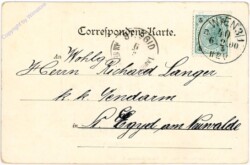 Correspondenz-Karte.
An Wohlg
Herrn Richard Langer
k. k. Gendarm
St. Egyd am Neuwalde